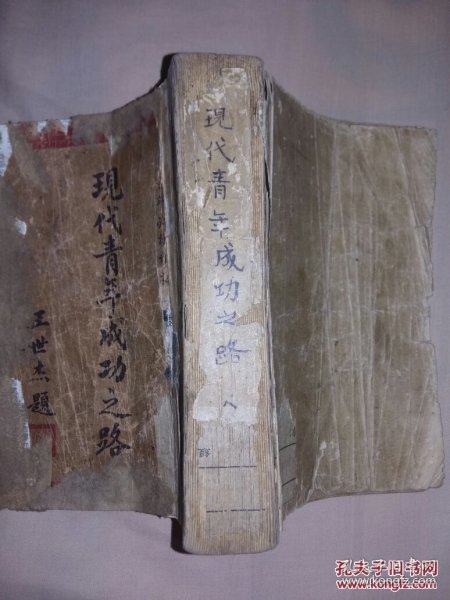 現代青年成功之路
王世杰題
現代青年成功之路
孔夫子旧书网
www.kongfz.com